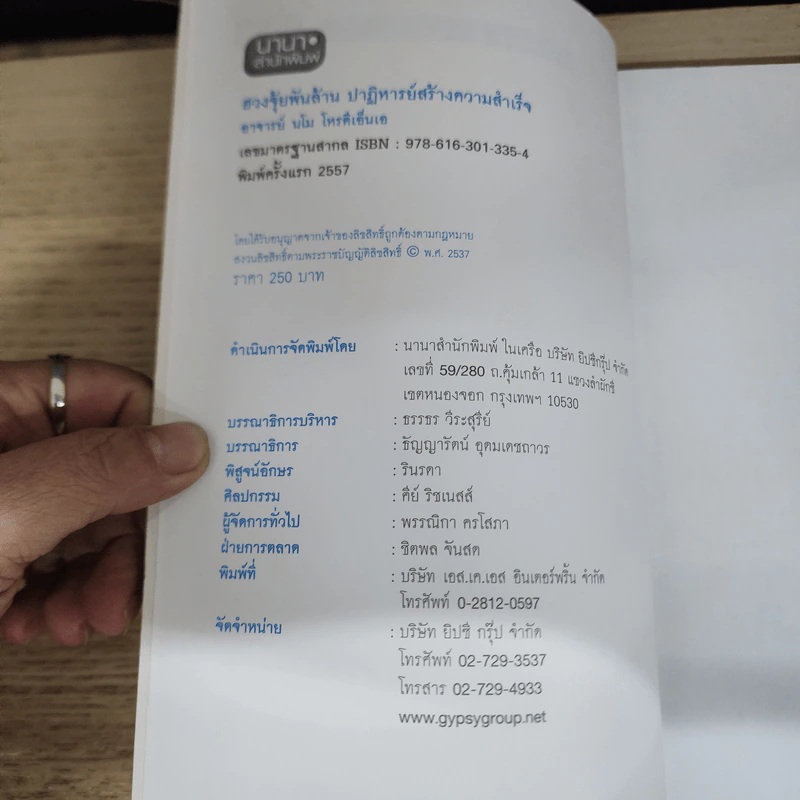 นานา
สำนักพิมพ์
ฮวงจุ้ยพันล้าน ปาฏิหารย์สร้างความสำเร็จ
อาจารย์ นโม โหรดีเอ็นเอ
เลขมาตรฐานสากล ISBN : 978-616-301-335-4
พิมพ์ครั้งแรก 2557
โดยได้รับอนุญาตจากเจ้าของลิขสิทธิ์ถูกต้องตามกฎหมาย
สงวนลิขสิทธิ์ตามพระราชบัญญัติลิขสิทธิ์ © พ.ศ. 2537
ราคา 250 บาท
ดำเนินการจัดพิมพ์โดย : นานาสำนักพิมพ์ ในเครือ บริษัท ยิปซีกรุ๊ป จำกัด
เลขที่ 59/280 ถ.คุ้มเกล้า 11 แขวงลำผักชี
เขตหนองจอก กรุงเทพฯ 10530
บรรณาธิการบริหาร : ธรรธร วีระสุรีย์
บรรณาธิการ : ธัญญารัตน์ อุดมเดชถาวร
พิสูจน์อักษร : รินรดา
ศิลปกรรม : คีย์ ริชเนสส์
ผู้จัดการทั่วไป : พรรณิกา ครโสภา
ฝ่ายการตลาด : ชิตพล จันสด
พิมพ์ที่ : บริษัท เอส.เค.เอส อินเตอร์พริ้น จำกัด
โทรศัพท์ 0-2812-0597
จัดจำหน่าย : บริษัท ยิปซี กรุ๊ป จำกัด
โทรศัพท์ 02-729-3537
โทรสาร 02-729-4933
www.gypsygroup.net